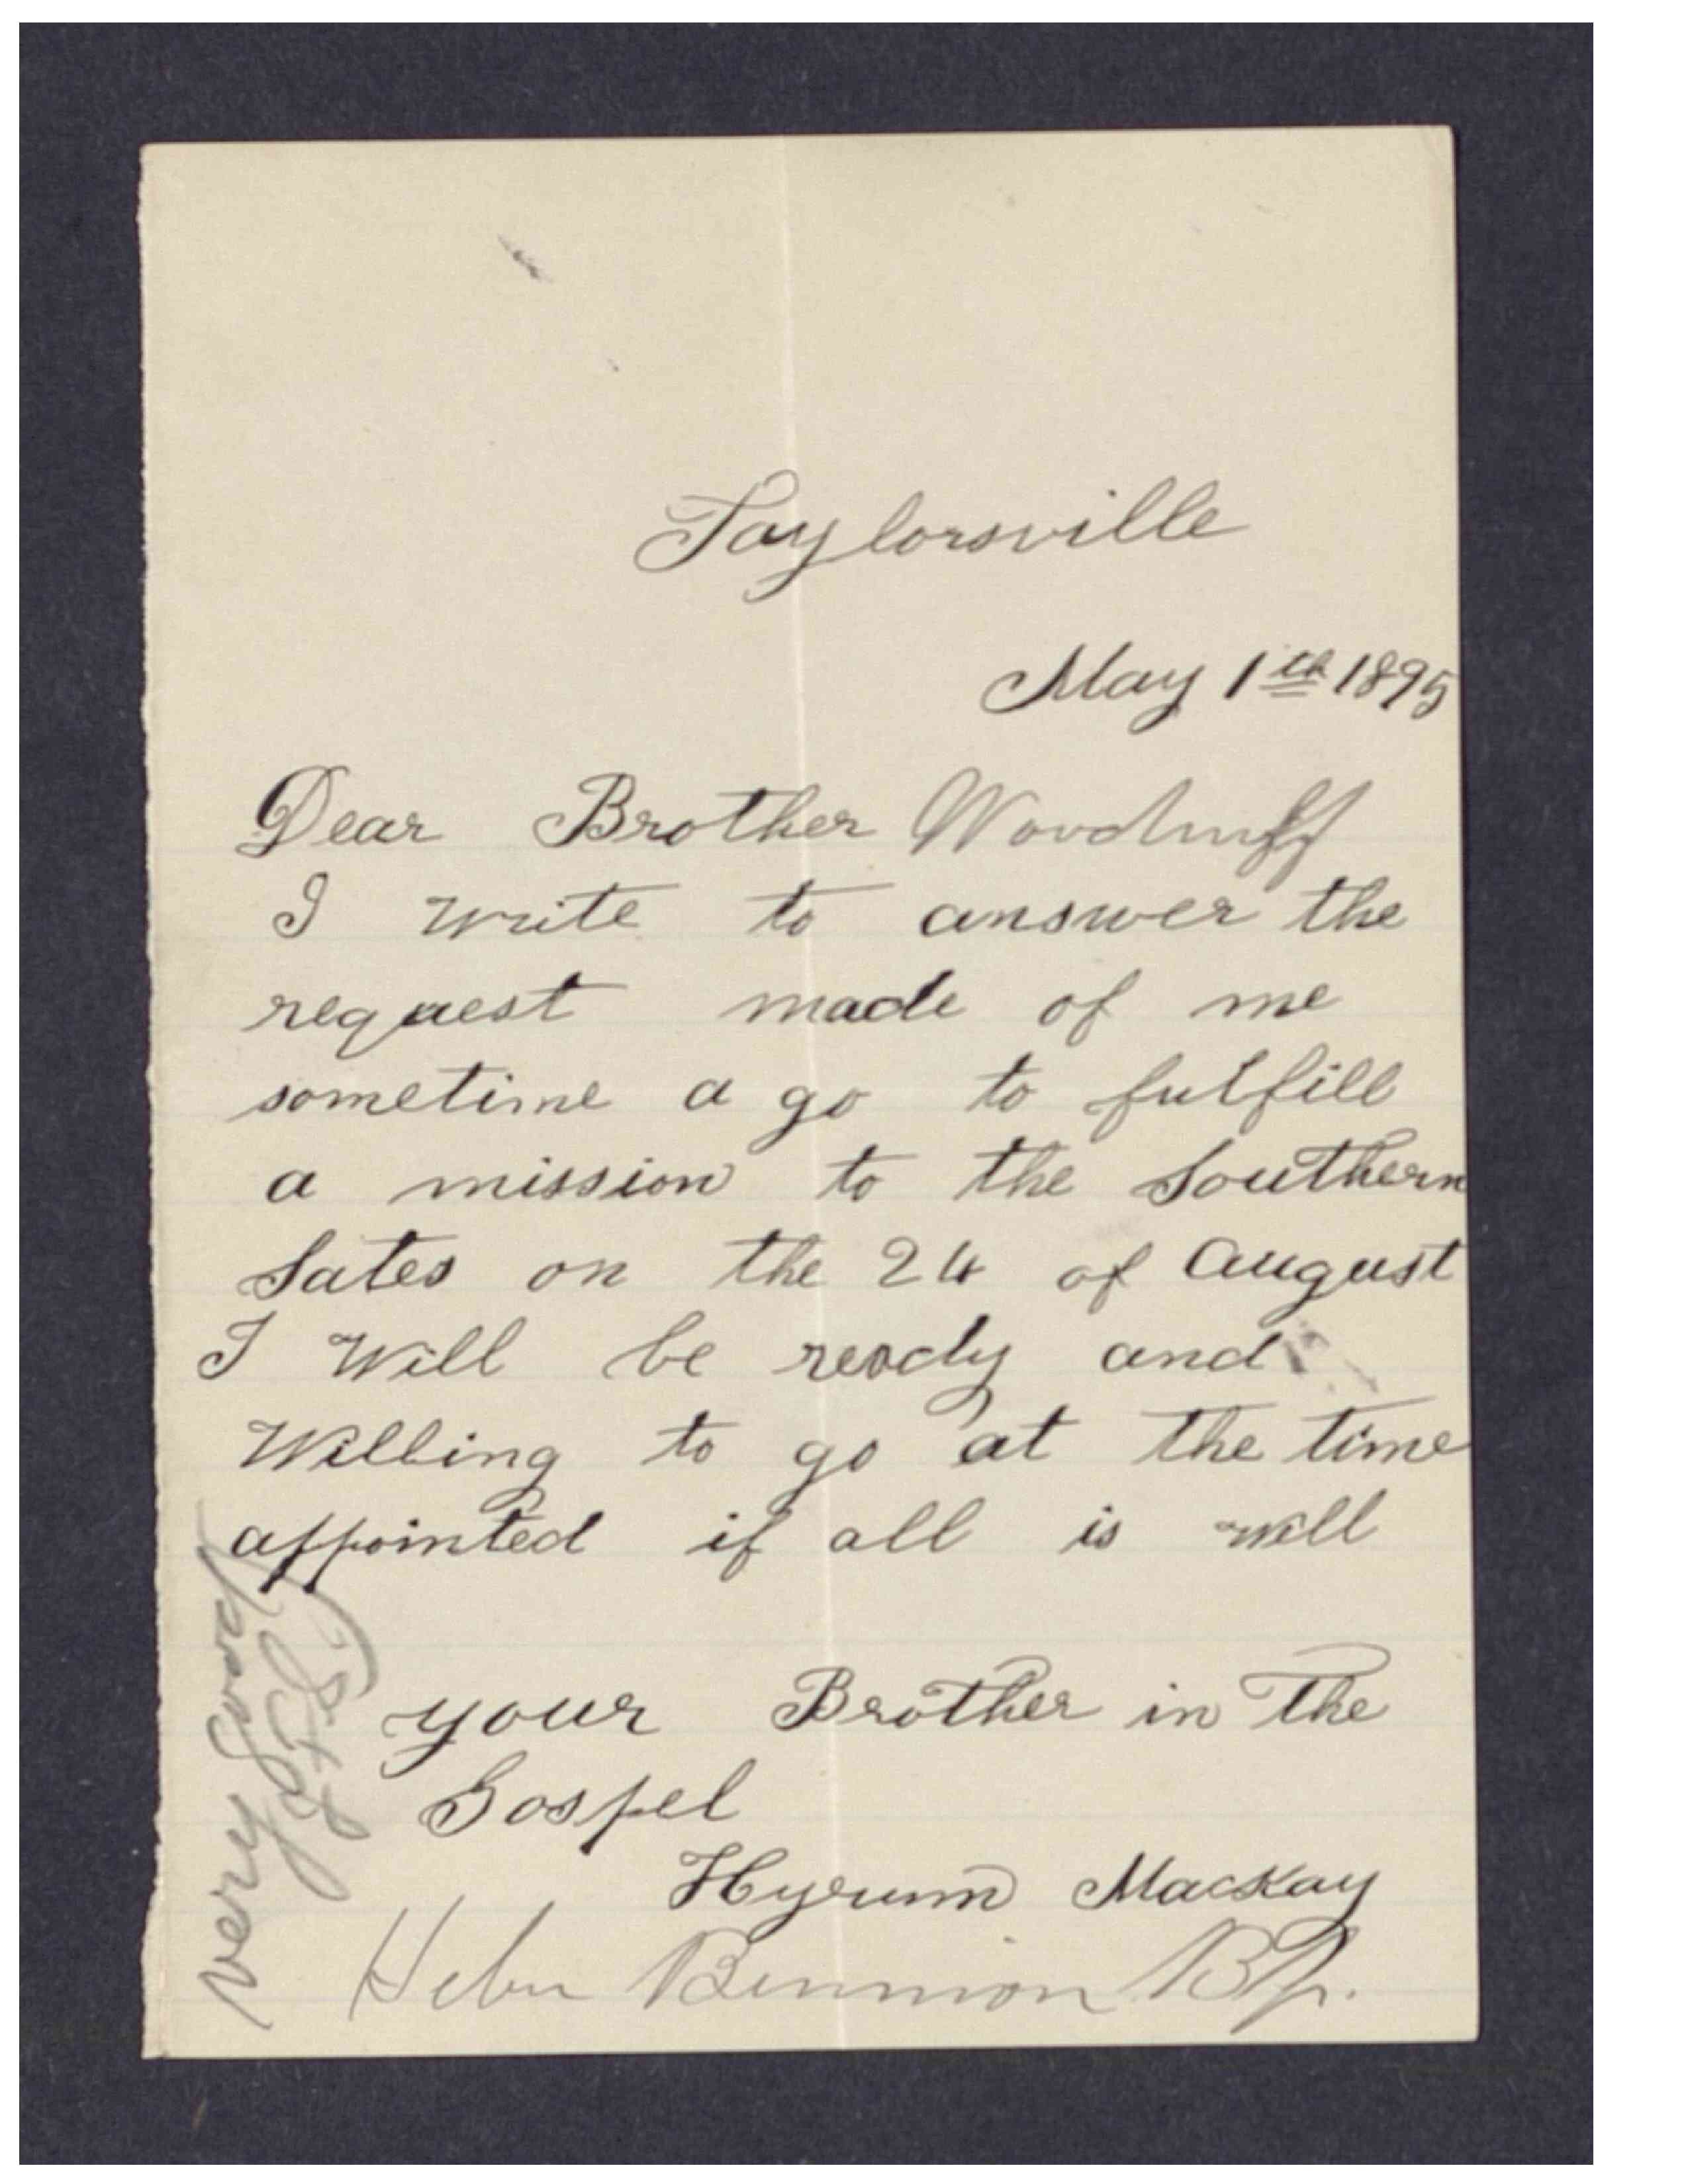 Taylorsville
May 1th 1895
Dear Brother Woodruff
I write to answer the
request made of me
sometime a go to fulfill
a mission to the Southern
Sates on the 24 of August
I Will be ready and
Willing to go at the time
appointed if all is will
your Brother in The
Gospel
Hyrum Mackay
Heber Bennion Bp.
Very Good
J. F. S.